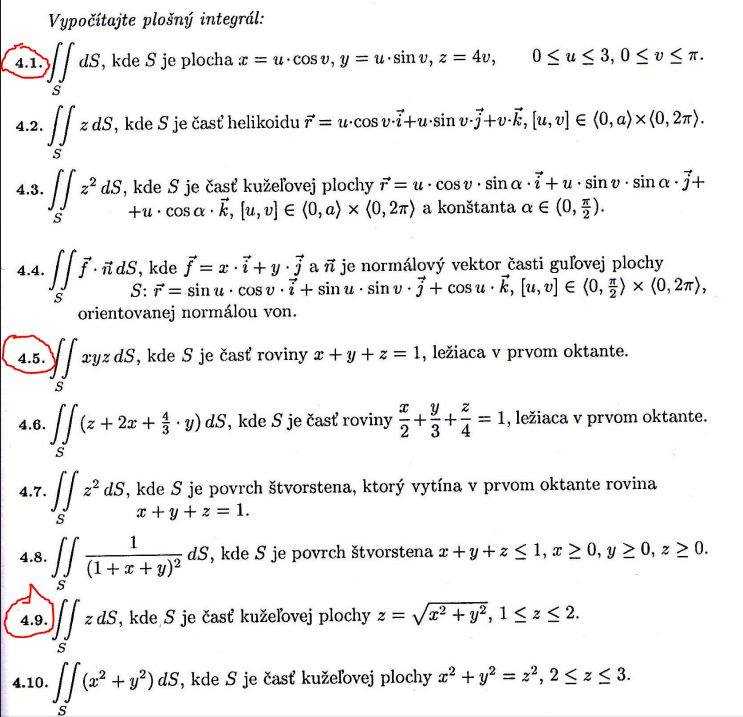 Vypočítajte plošný integrál:
4.1. ∬_S dS, kde S je plocha x = u·cos v, y = u·sin v, z = 4v, 0 ≤ u ≤ 3, 0 ≤ v ≤ π.
4.2. ∬_S z dS, kde S je časť helikoidu r⃗ = u·cos v·i⃗+u·sin v·j⃗+v·k⃗, [u, v] ∈ ⟨0, a⟩×⟨0, 2π⟩.
4.3. ∬_S z² dS, kde S je časť kužeľovej plochy r⃗ = u · cos v · sin α · i⃗ + u · sin v · sin α · j⃗+
+u · cos α · k⃗, [u, v] ∈ ⟨0, a⟩ × ⟨0, 2π⟩ a konštanta α ∈ (0, π/2).
4.4. ∬_S f⃗ · n⃗ dS, kde f⃗ = x · i⃗ + y · j⃗ a n⃗ je normálový vektor časti guľovej plochy
S: r⃗ = sin u · cos v · i⃗ + sin u · sin v · j⃗ + cos u · k⃗, [u, v] ∈ ⟨0, π/2⟩ × ⟨0, 2π⟩,
orientovanej normálou von.
4.5. ∬_S xyz dS, kde S je časť roviny x + y + z = 1, ležiaca v prvom oktante.
4.6. ∬_S (z + 2x + 4/3 · y) dS, kde S je časť roviny x/2 + y/3 + z/4 = 1, ležiaca v prvom oktante.
4.7. ∬_S z² dS, kde S je povrch štvorstena, ktorý vytína v prvom oktante rovina
x + y + z = 1.
4.8. ∬_S 1/(1 + x + y)² dS, kde S je povrch štvorstena x + y + z ≤ 1, x ≥ 0, y ≥ 0, z ≥ 0.
4.9. ∬_S z dS, kde S je časť kužeľovej plochy z = √(x² + y²), 1 ≤ z ≤ 2.
4.10. ∬_S (x² + y²) dS, kde S je časť kužeľovej plochy x² + y² = z², 2 ≤ z ≤ 3.